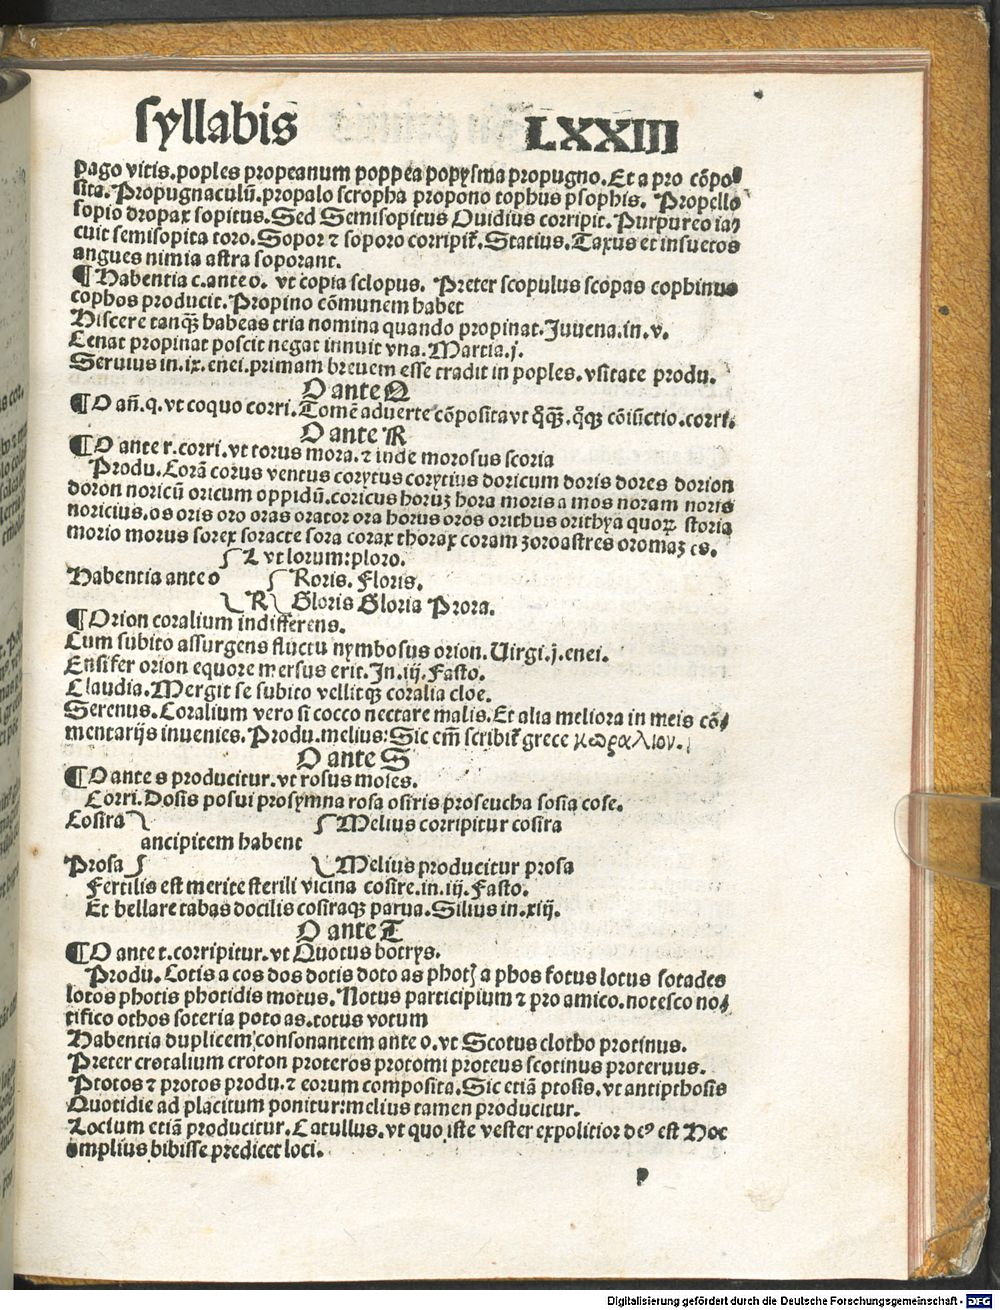 syllabis LXXIII
pago vitis.poples propeanum poppea popysma propugno.Et a pro cōpo⸗
sita.Propugnaculū.propalo scropha propono tophus psophis. Propello
sopio dropax sopitus.Sed Semisopitus Ouidius corripit.Purpureo ia⸗
cuit semisopita toro.Sopor ⁊ soporo corripit̄.Statius.Taxus et insuetos
angues nimia astra soporant.
¶Habentia c.ante o. vt copia sclopus. Preter scopulus scopas cophinus
cophos producit.Propino cōmunem habet
Discere tanqꝫ habeas tria nomina quando propinat.Juuena.in.v.
Cenat propinat poscit negat innuit vna.Martia.j.
Seruius in.ix.enei.primam breuem esse tradit in poples.vsitate produ.
O ante Q
¶O añ.q.vt coquo corri.Tomē aduerte cōposita vt q̄qꝫ.q̄qꝫ cōiūctio.corri.
O ante R
¶O ante r.corri.vt torus mora.⁊ inde morosus scoria
Produ.Corā corus ventus corytus corytius doricum doris dores dorion
doron noricū oricum oppidū.coricus horuꝫ hora moris a mos noram noris
noricius.os oris oro oras orator ora horus oros orithus orithya quoꝝ storia
morio morus sorex soracte sora corax thorax coram zoroastres oromaꝫes.
L vt lorum:ploro.
Habentia ante o Roris. Floris.
R Gloris Gloria Prora.
¶Orion coralium indifferens.
Cum subito assurgens fluctu nymbosus orion.Uirgi.j.enei.
Ensifer orion equore mersus erit.In.iij.Fasto.
Claudia.Mergit se subito vellitqꝫ coralia cloe.
Serenus.Coralium vero si cocco nectare malis.Et alia meliora in meis cō⸗
mentarijs inuenies.Produ.melius:Sic em̄ scribit̄ grece κωραλιον.
O ante S
¶O ante s producitur.vt rosus moses.
Corri.Dosis posui prosymna rosa osiris proseucha sosia cose.
Cosira Melius corripitur cosira
ancipitem habent
Prosa Melius producitur prosa
Fertilis est merite sterili vicina cosire.in.iij.Fasto.
Et bellare rabas docilis cosiraqꝫ parua.Silius in.xiij.
O ante T
¶O ante t.corripitur.vt Quotus botrys.
Produ.Cotis a cos dos dotis doto as a phos fotus lotus sotades
lotos photis photidis motus.Notus participium ⁊ pro amico.notesco no⸗
tifico othos soteria poto as.totus votum
Habentia duplicem consonantem ante o.vt Scotus clotho protinus.
Preter crotalium croton proteros protomi proteus scotinus proteruus.
Ptotos ⁊ protos produ.⁊ eorum composita.Sic etiā ptosis.vt antipthosis
Quotidie ad placitum ponitur:melius tamen producitur.
Locium etiā producitur.Catullus.vt quo iste vester expolitior deꝰ est Hoc
amplius bibisse predicet loci.
P
Digitalisierung gefördert durch die Deutsche Forschungsgemeinschaft - DFG